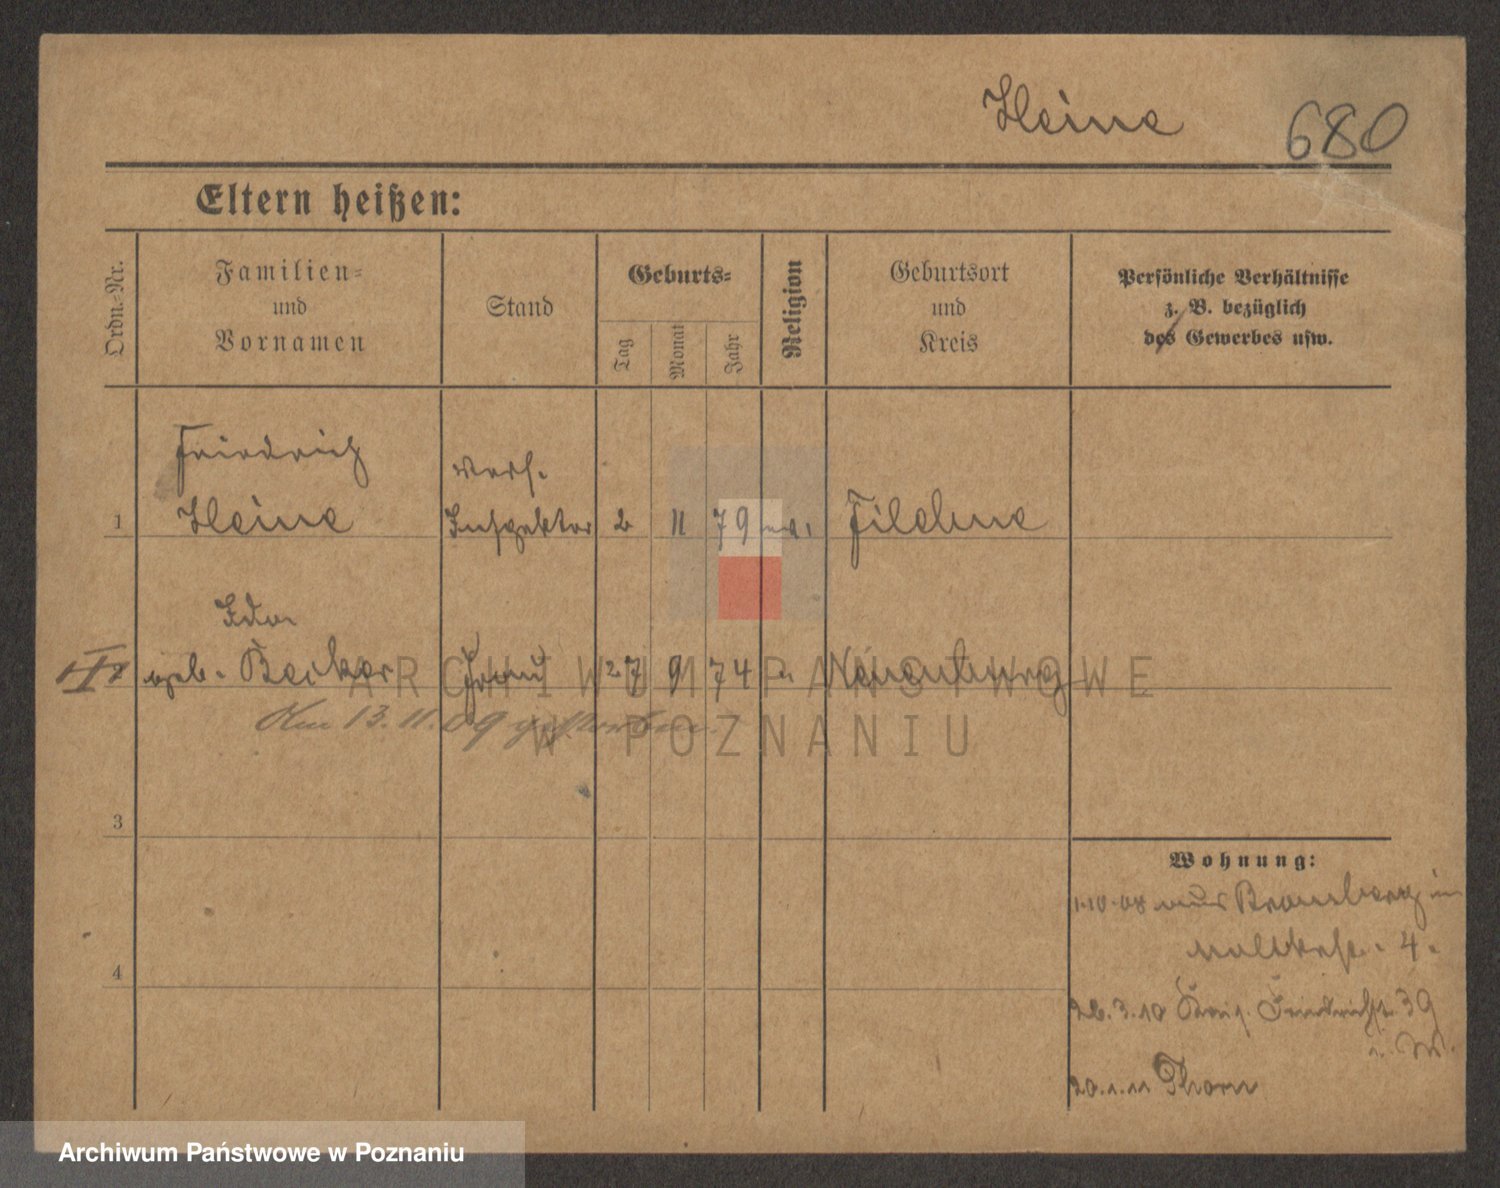 Heine 680
Eltern heißen:
Ordn.-Nr.
Familien-
und
Vornamen
Stand
Geburts-
Tag
Monat
Jahr
Religion
Geburtsort
und
Kreis
Persönliche Verhältnisse
z. B. bezüglich
des Gewerbes usw.
Friedrich
Vers.
1 Heine Inspektor 2 11 79 ev. Filehne
Ida
geb. Becker Frau 27 9 74 Neuenburg
Am 13.11.09 gestorben.
3
4
Wohnung:
1.10.08 aus Bromberg in
Moltkestr. 4.
26.3.10 Friedrichstr. 39
20.1.11 Thorn
ARCHIWUM PAŃSTWOWE
W POZNANIU
Archiwum Państwowe w Poznaniu